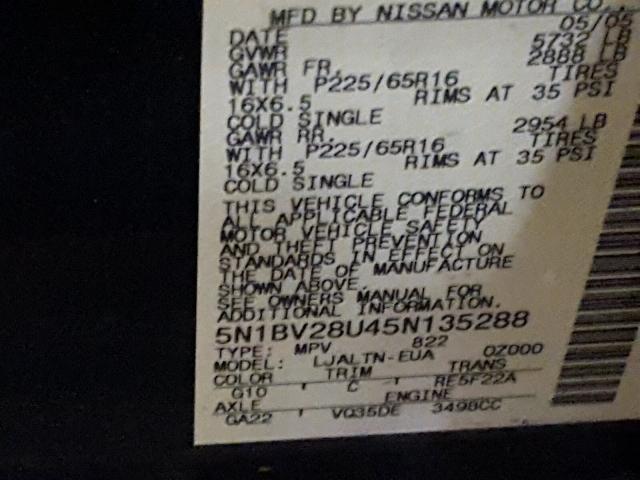 MFD BY NISSAN MOTOR CO.,
DATE 05/05
GVWR 5732 LB
GAWR FR. 2888 LB
WITH P225/65R16 TIRES
16X6.5 RIMS AT 35 PSI
COLD SINGLE
GAWR RR. 2954 LB
WITH P225/65R16 TIRES
16X6.5 RIMS AT 35 PSI
COLD SINGLE
THIS VEHICLE CONFORMS TO
ALL APPLICABLE FEDERAL
MOTOR VEHICLE SAFETY
AND THEFT PREVENTION
STANDARDS IN EFFECT ON
THE DATE OF MANUFACTURE
SHOWN ABOVE.
SEE OWNERS MANUAL FOR
ADDITIONAL INFORMATION.
5N1BV28U45N135288
TYPE: MPV 822
MODEL: LJALTN-EUA OZ000
COLOR TRIM TRANS
G10 C RE5F22A
AXLE ENGINE
GA22 VQ35DE 3498CC